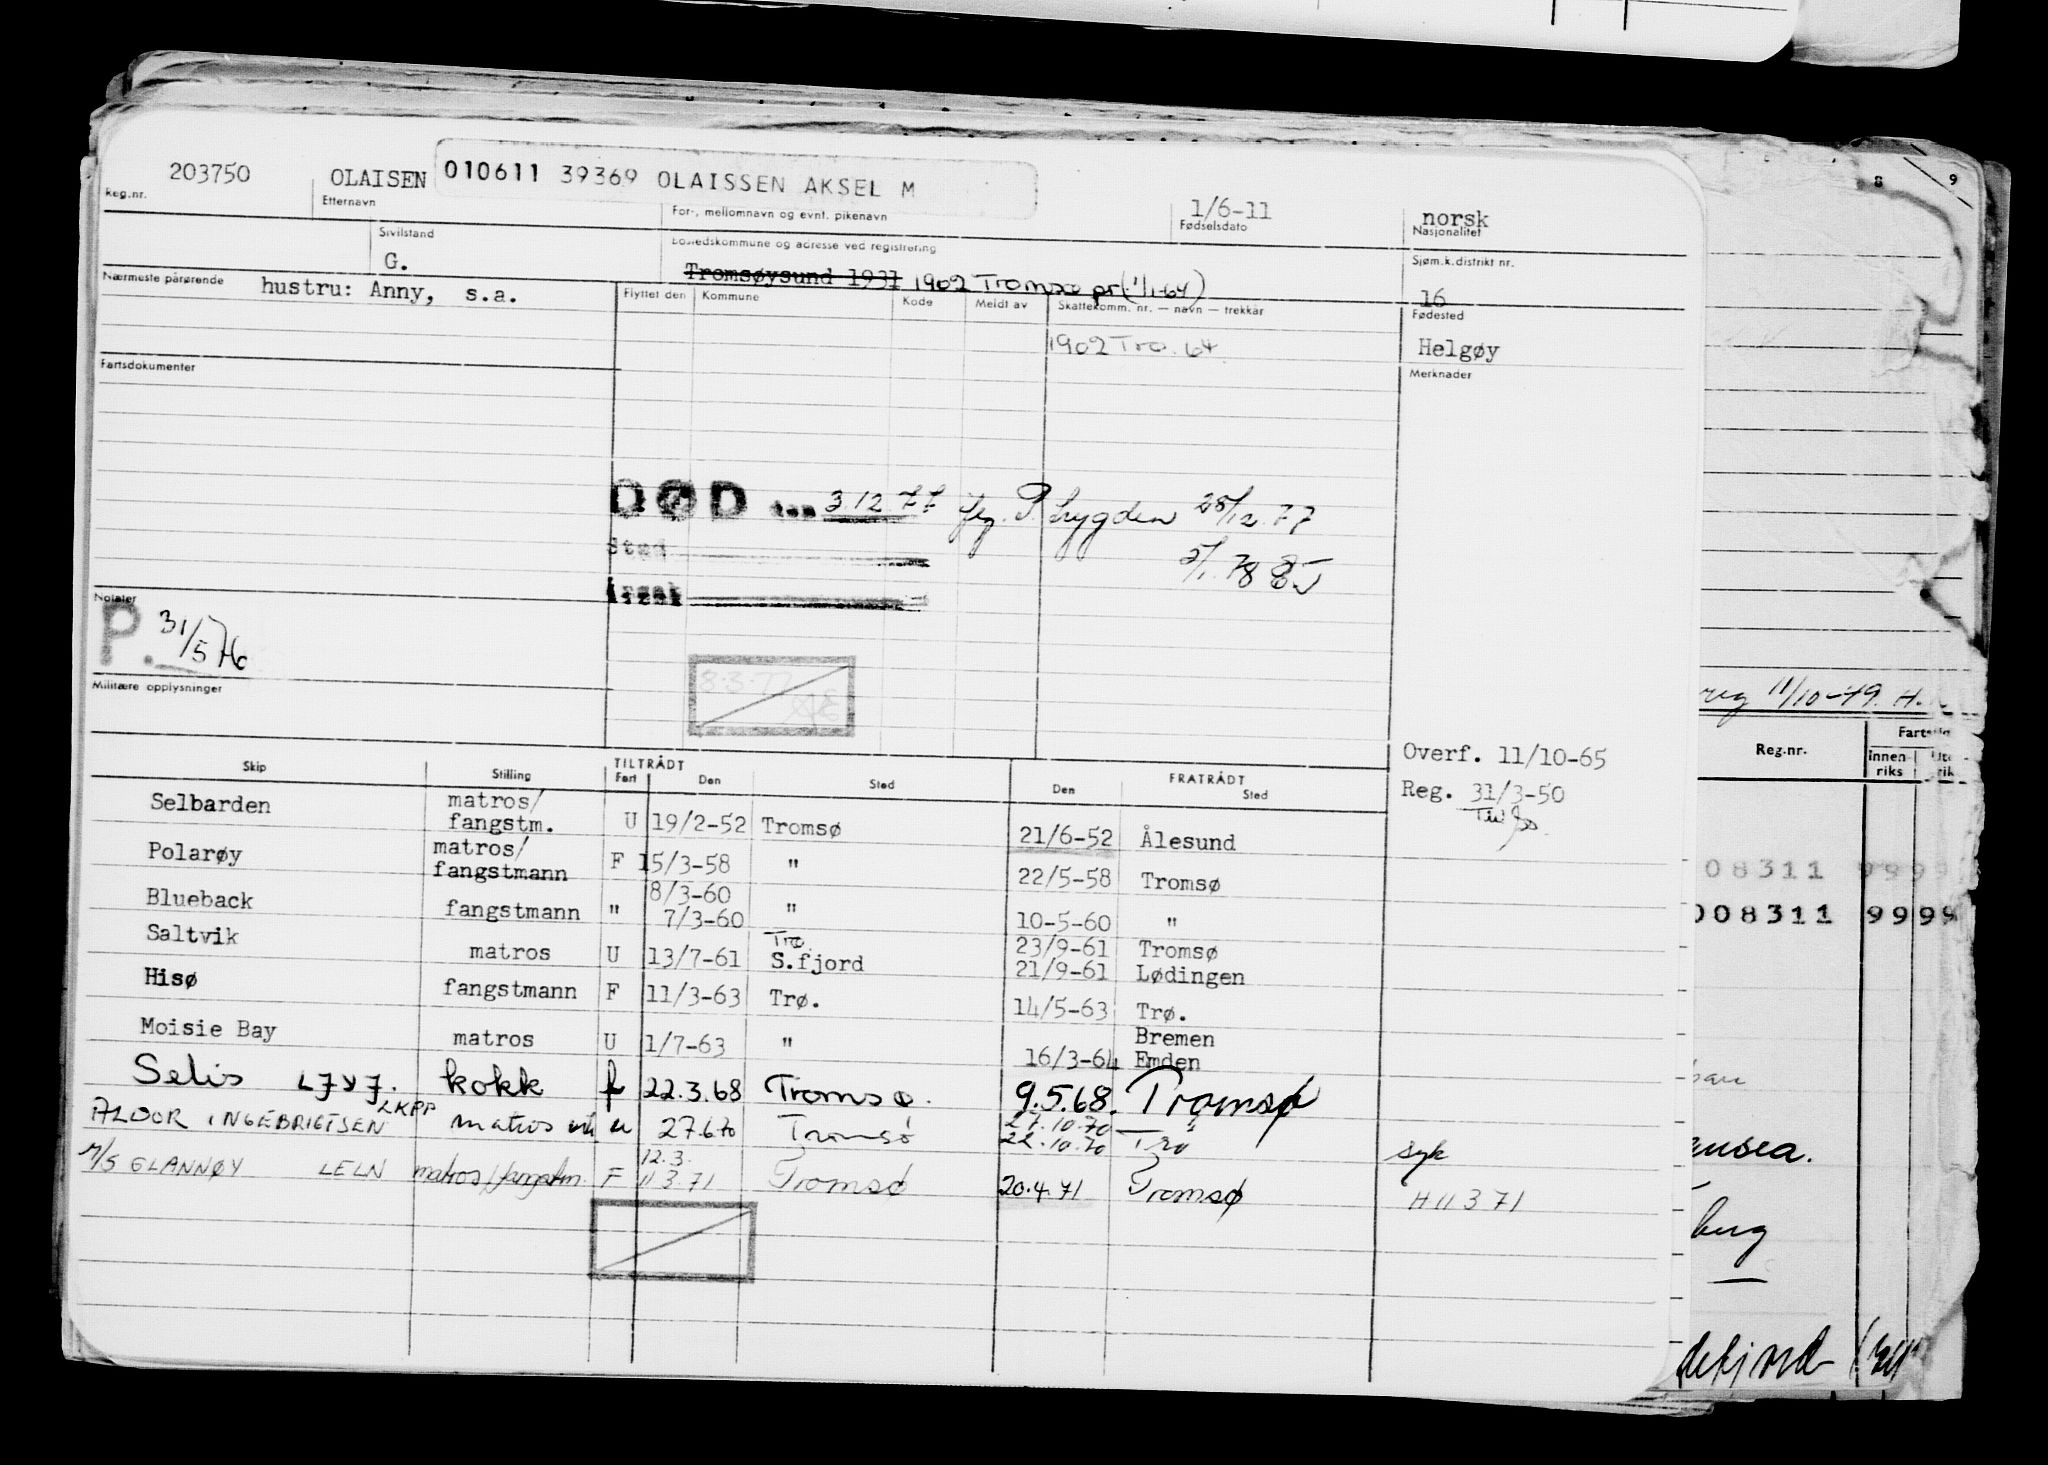 203750 OLAISEN 010611 39369 OLAISSEN AKSEL M 1/6-11 norsk
Reg.nr. Etternavn For-, mellomnavn og evnt. pikenavn Fødselsdato Nasjonalitet
Sivilstand Bostedskommune og adresse ved registrering Sjøm.k.distrikt nr.
G. Tromsøysund 1931 1902 Tromsø pr (1/1-64) 16
Nærmeste pårørende hustru: Anny, s.a. Flyttet den Kommune Kode Meldt av Skattekomm. nr. — navn — trekkår Fødested
1902 Tro. 64 Helgøy
Fartsdokumenter Merknader
DØD den 3.12.77 P. Lygden 28/12.77
Sted 5/1.78
Årsak
Notater
P. 31/5 76
Militære opplysninger
8.3.77
Overf. 11/10-65
Reg. 31/3-50
Skip Stilling TILTRÅDT Fart Den Sted FRATRÅDT Den Sted
Selbarden matros/ fangstm. U 19/2-52 Tromsø 21/6-52 Ålesund
Polarøy matros/ fangstmann F 15/3-58 " 22/5-58 Tromsø
8/3-60
Blueback fangstmann " 7/3-60 " 10-5-60 "
Tro. 23/9-61 Tromsø
Saltvik matros U 13/7-61 S.fjord 21/9-61 Lødingen
Hisø fangstmann F 11/3-63 Trø. 14/5-63 Trø.
Bremen
Moisie Bay matros U 1/7-63 " 16/3-64 Emden
Selis LJYJ. kokk f 22.3.68 Tromsø. 9.5.68. Tromsø
27.10.70
ALDOR INGEBRIGTSEN LKPP matros u 27.6.70 Tromsø 22.10.70 Trø syk
12.3.
M/S GLANNØY LELN matros/fangstm. F 11 3 71 Tromsø 20.4.71 Tromsø H 11 3 71
8 9
reg 11/10-49. H.
Reg.nr. Innen-riks
008311 9999
008311 9999